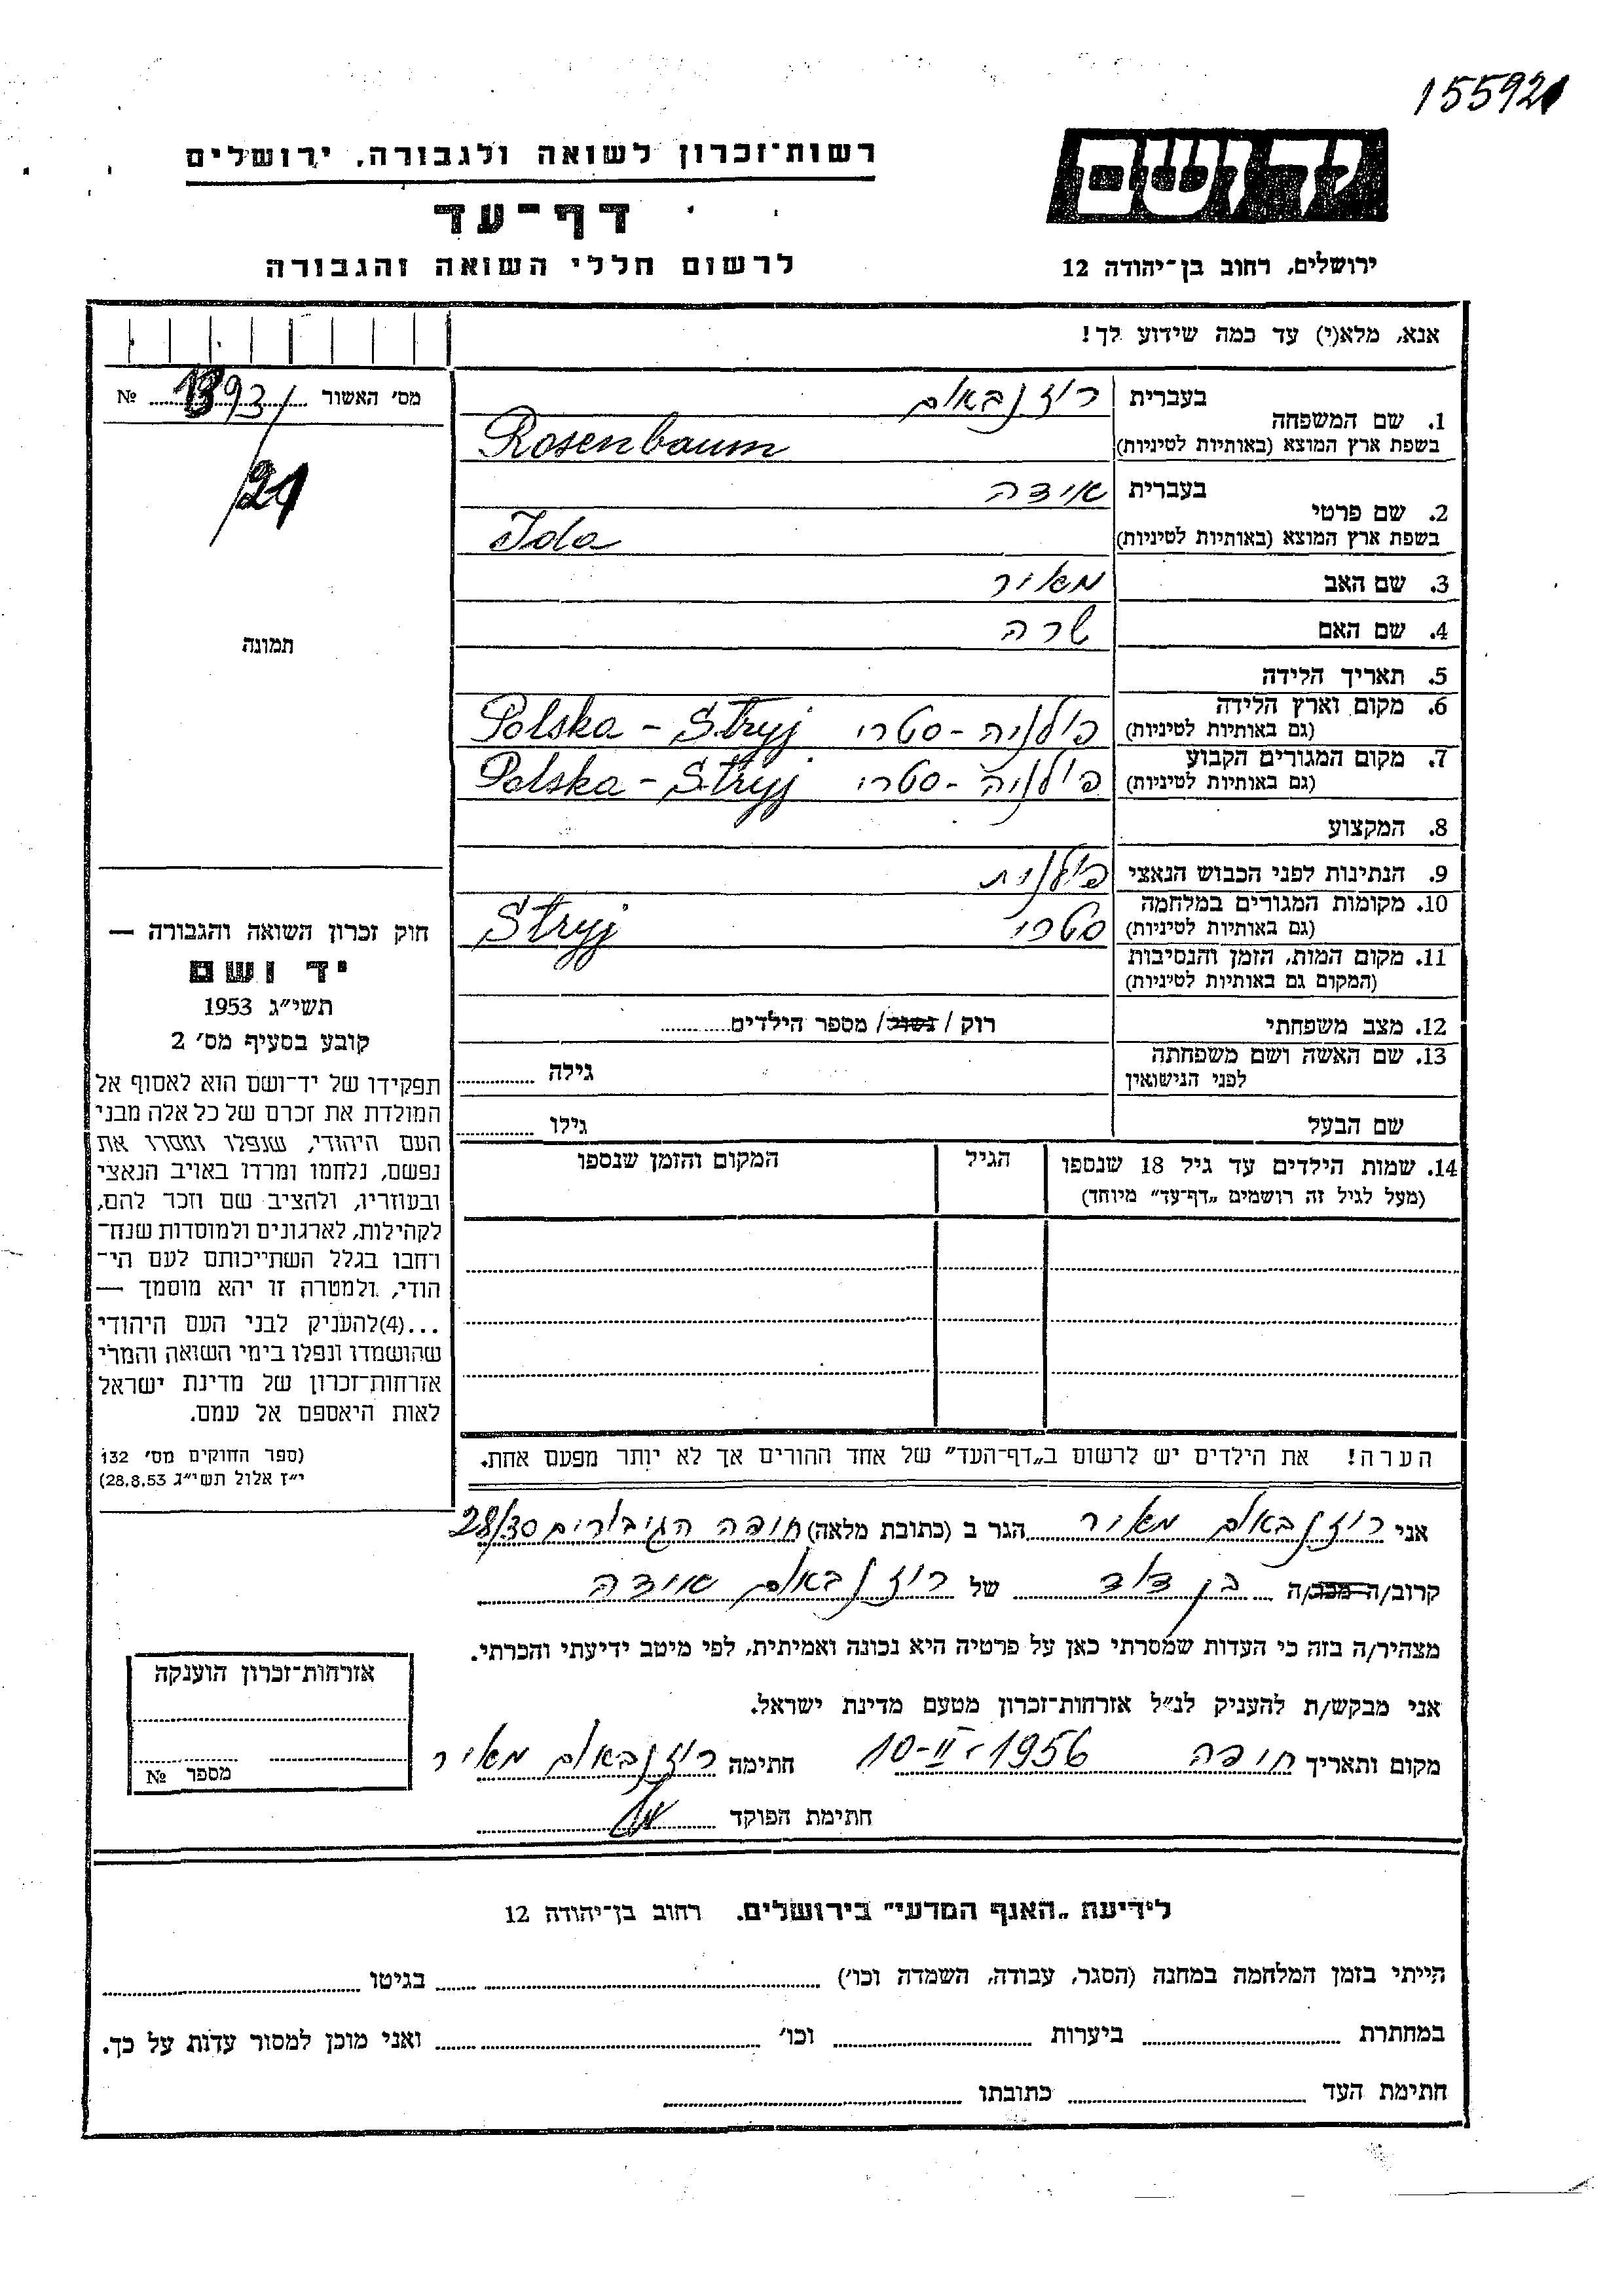 155921
יד ושם
רשות־זכרון לשואה ולגבורה, ירושלים
דף־עד
לרשום חללי השואה והגבורה
ירושלים, רחוב בן־יהודה 12
אנא, מלא(י) עד כמה שידוע לך!
מס׳ האשור № 
/21
תמונה
1. שם המשפחה
בעברית רוזנבאום
בשפת ארץ המוצא (באותיות לטיניות) Rosenbaum
2. שם פרטי
בעברית אידה
בשפת ארץ המוצא (באותיות לטיניות) Ida
3. שם האב מאיר
4. שם האם שרה
5. תאריך הלידה
6. מקום וארץ הלידה
(גם באותיות לטיניות) פולניה - סטרי Polska - Stryj
7. מקום המגורים הקבוע
(גם באותיות לטיניות) פולניה - סטרי Polska - Stryj
8. המקצוע
9. הנתינות לפני הכבוש הנאצי פולנית
10. מקומות המגורים במלחמה
(גם באותיות לטיניות) סטרי Stryj
11. מקום המות, הזמן והנסיבות
(המקום גם באותיות לטיניות)
12. מצב משפחתי רוק / נשוי / מספר הילדים
13. שם האשה ושם משפחתה
לפני הנישואין גילה
שם הבעל גילו
14. שמות הילדים עד גיל 18 שנספו הגיל המקום והזמן שנספו
(מעל לגיל זה רושמים „דף־עד״ מיוחד)
הערה! את הילדים יש לרשום ב„דף־העד״ של אחד ההורים אך לא יותר מפעם אחת.
חוק זכרון השואה והגבורה —
יד ושם
תשי״ג 1953
קובע בסעיף מס׳ 2
תפקידו של יד־ושם הוא לאסוף אל
המולדת את זכרם של כל אלה מבני
העם היהודי, שנפלו ומסרו את
נפשם, נלחמו ומרדו באויב הנאצי
ובעוזריו, ולהציב שם וזכר להם,
לקהילות, לארגונים ולמוסדות שנח־
רחבו בגלל השתייכותם לעם הי־
הודי, ולמטרה זו יהא מוסמך —
...(4)להעניק לבני העם היהודי
שהושמדו ונפלו בימי השואה והמרי
אזרחות־זכרון של מדינת ישראל
לאות היאספם אל עמם.
(ספר החוקים מס׳ 132
י״ז אלול תשי״ג 28.8.53)
אני רוזנבאום מאיר הגר ב (כתובת מלאה) חיפה הגיבורים 28/30
קרוב/ה מכר/ה בן דוד של רוזנבאום אידה
מצהיר/ה בזה כי העדות שמסרתי כאן על פרטיה היא נכונה ואמיתית, לפי מיטב ידיעתי והכרתי.
אני מבקש/ת להעניק לנ״ל אזרחות־זכרון מטעם מדינת ישראל.
מקום ותאריך חיפה 10-II-1956 חתימה רוזנבאום מאיר
חתימת הפוקד
אזרחות־זכרון הוענקה
מספר №
לידיעת „האגף המדעי״ בירושלים. רחוב בן־יהודה 12
הייתי בזמן המלחמה במחנה (הסגר, עבודה, השמדה וכו׳) בגיטו
במחתרת ביערות וכו׳ ואני מוכן למסור עדות על כך.
חתימת העד כתובתו